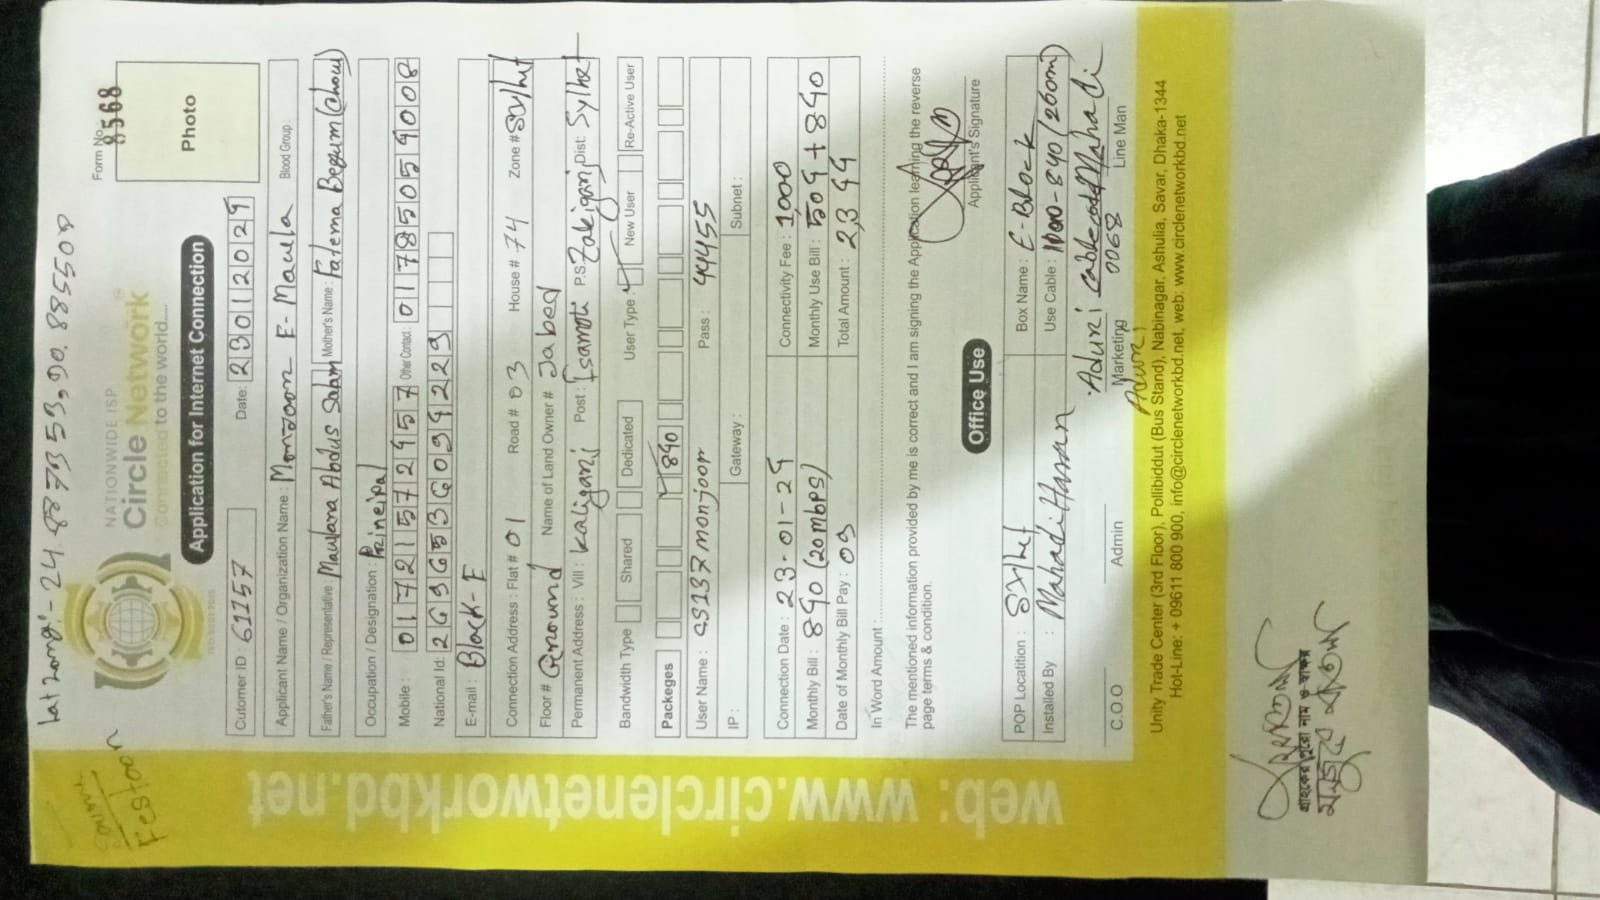 Lat Long:- 24.887353, 90.885508
Source
Festoon
NATIONWIDE ISP
Circle Network
Connected to the world...
Form No.
8568
Photo
Application for Internet Connection
Cutomer ID : 61157 Date: 23012024
Applicant Name / Organization Name : Monzoor E- Maula Blood Group :
Father's Name / Representative : Maulana Abdus Salam Mother's Name : Fatema Begum Chow
Occupation / Designation :
Mobile : 01721572457 Other Contact: 01785059008
National Id: 2696536039229
E-mail : Block- E
Connection Address : Flat # 01 Road # 03 House # 74 Zone # Sylhet
Floor # Ground Name of Land Owner # Jabed
Permanent Address : Vill : Kaliganj Post : Isamoti P.S: Zakiganj Dist: Sylhet
Bandwidth Type Shared Dedicated User Type : New User Re-Active User
Packeges 840
User Name : cs137monjoor Pass : 44455
IP : Gateway : Subnet :
Connection Date : 23-01-24 Connectivity Fee : 1,000
Monthly Bill : 840 (20mbps) Monthly Use Bill : 504 + 840
Date of Monthly Bill Pay : 09 Total Amount : 2,344
In Word Amount :
The mentioned information provided by me is correct and I am signing the Application learning the reverse
page terms & condition.
Applicant's Signature
Office Use
POP Locatition : Sylhet Box Name : E-Block
Installed By : Mahadi Hasan Use Cable : 1100-840 (260m)
Aduri 0068 Mahadi
C.O.O Admin Marketing Line Man
Aduri
Unity Trade Center (3rd Floor), Pollibiddut (Bus Stand), Nabinagar, Ashulia, Savar, Dhaka-1344
Hot-Line: + 09611 800 900, info@circlenetworkbd.net, web: www.circlenetworkbd.net
web: www.circlenetworkbd.net
গ্রাহকের পুরো নাম ও স্বাক্ষর